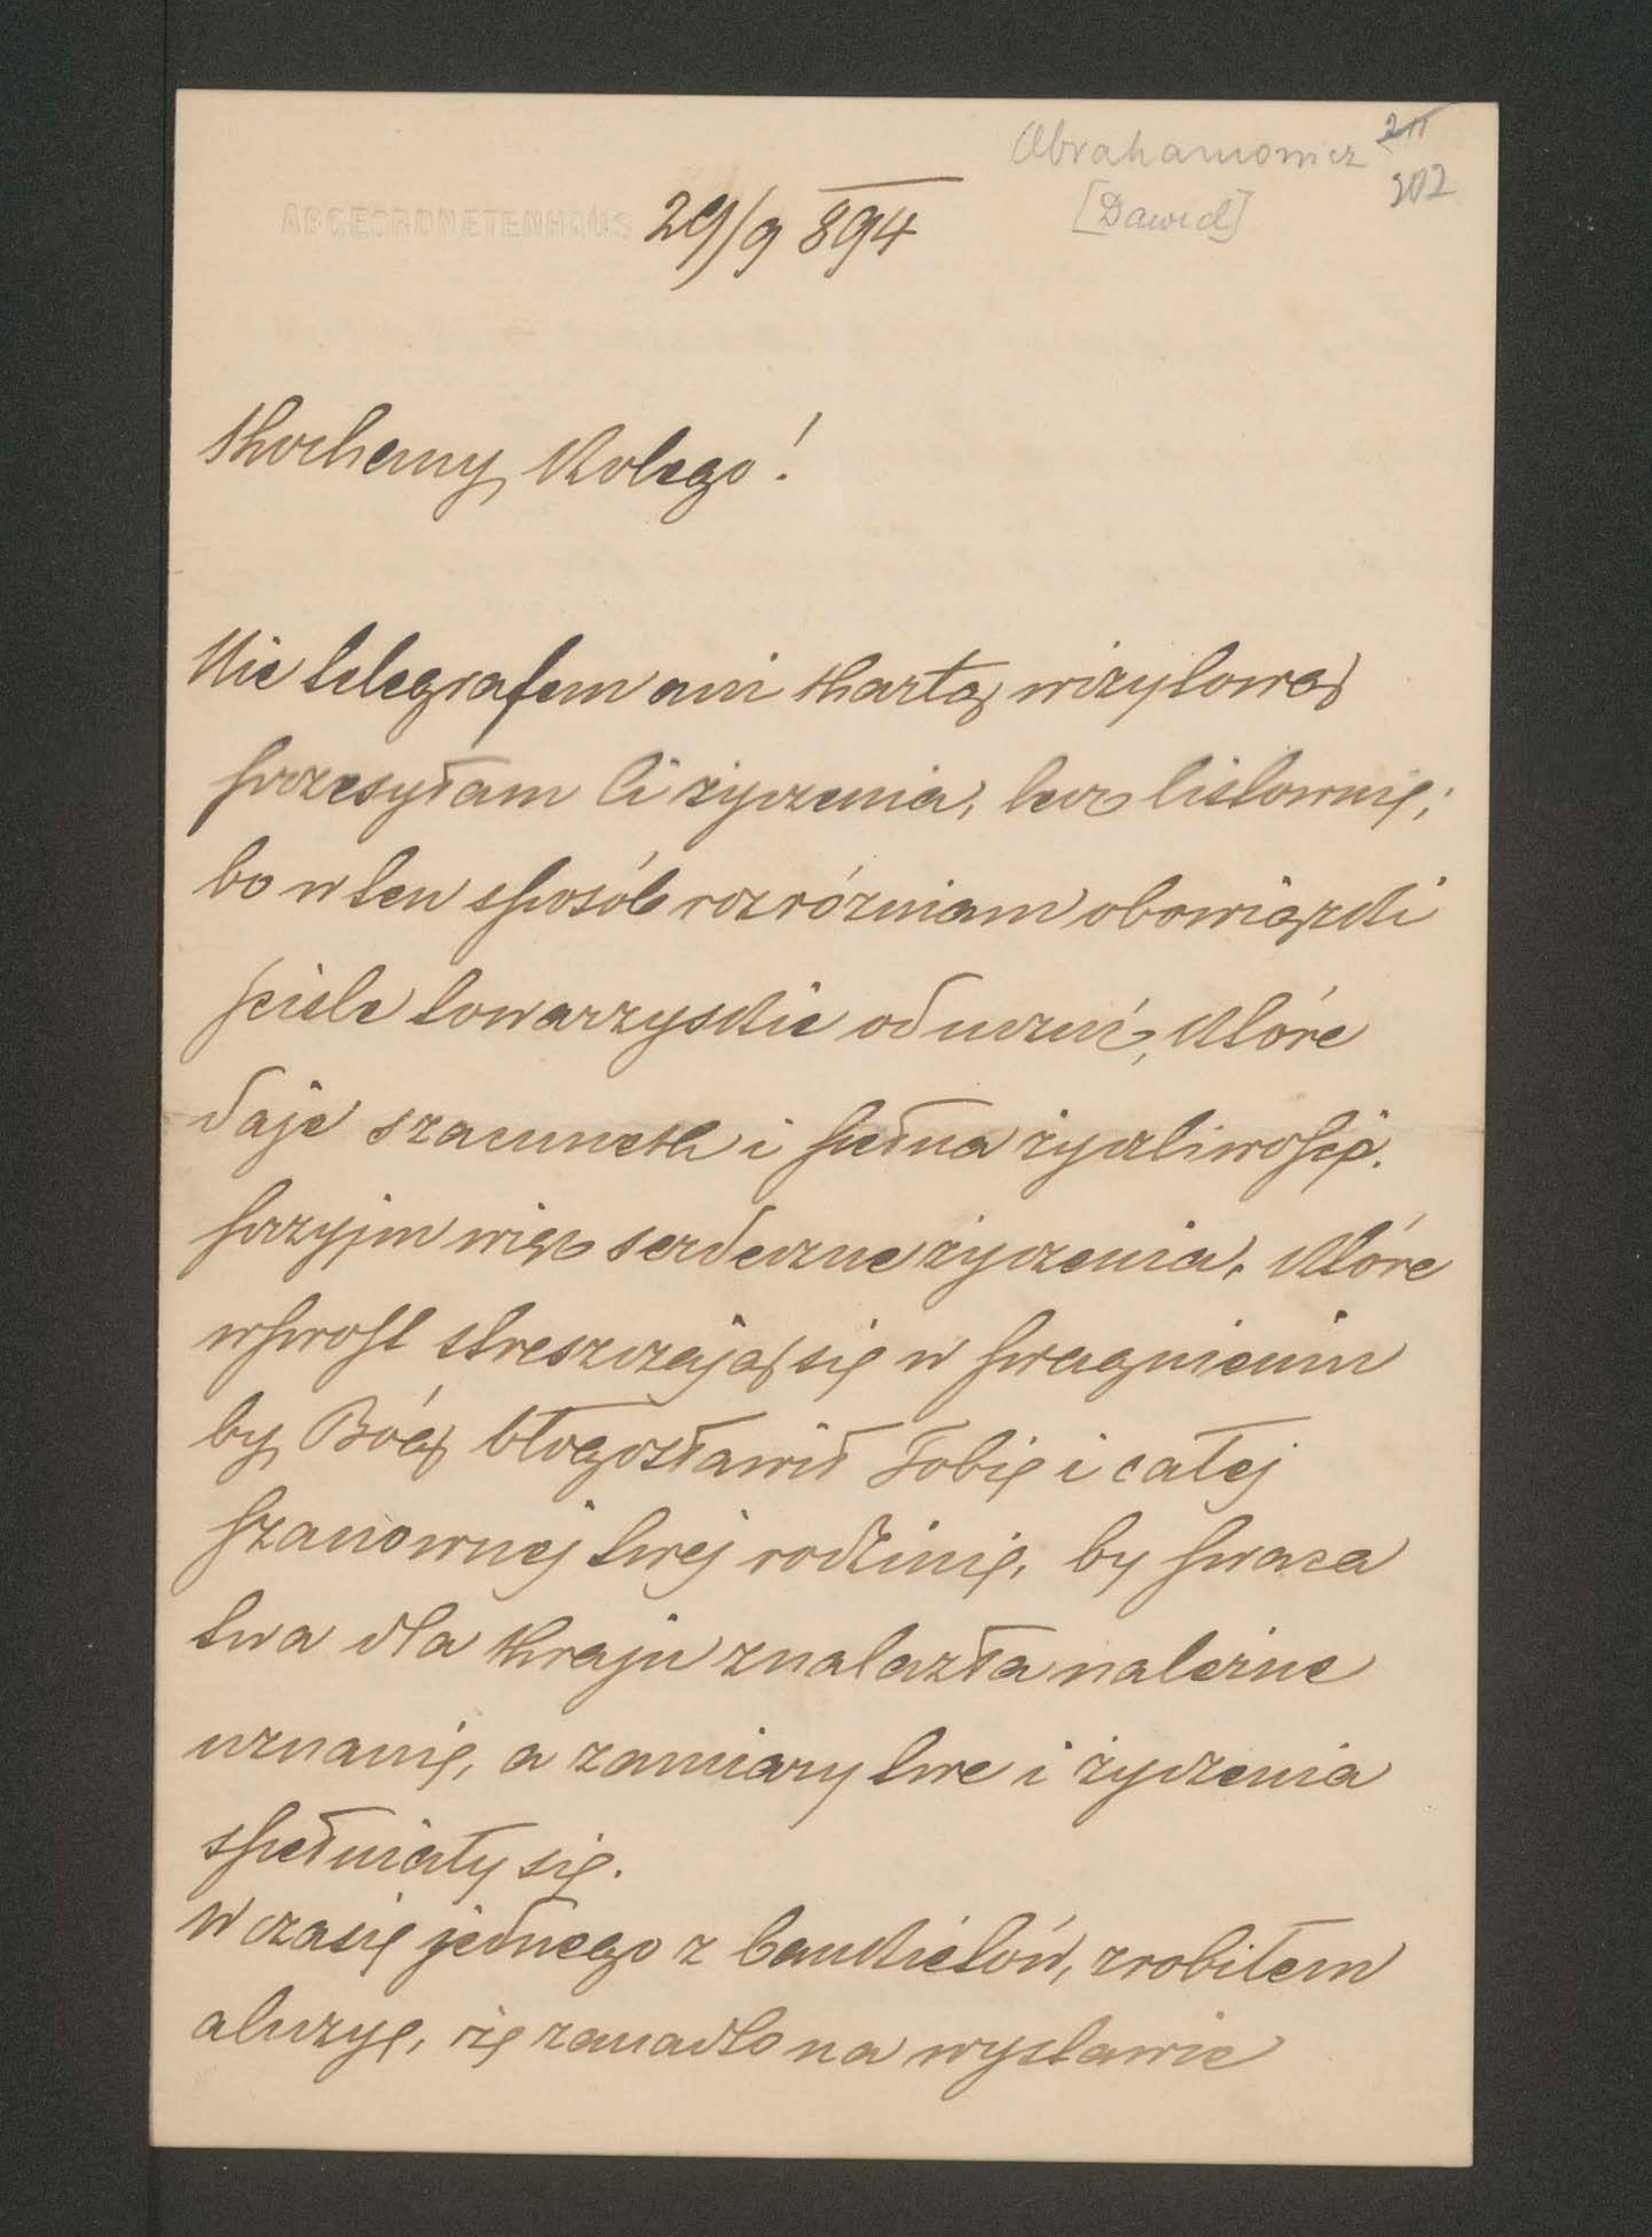 Abrahamowicz 211
[Dawid] 202
ABGEORDNETENHAUS 29/9 894
Kochany Kolego!
Nie telegrafem ani kartą wizytową
przesyłam Ci życzenia, lecz listownię;
bo w ten sposób rozróżniam obowiązki
ściśle towarzyskie od uczuć, które
daje szacunek i pełna życzliwość.
Przyjm więc serdeczne życzenia, które
wprost streszczają się w pragnieniu
by Bóg błogosławił Tobię i całej
szanownej twej rodzinię, by praca
twa dla kraju znalazła należne
uznanię, a zamiary twe i życzenia
spełniały się.
W czasię jednego z bankietów, zrobiłem
aluzyę, żę zanadto na wystawie